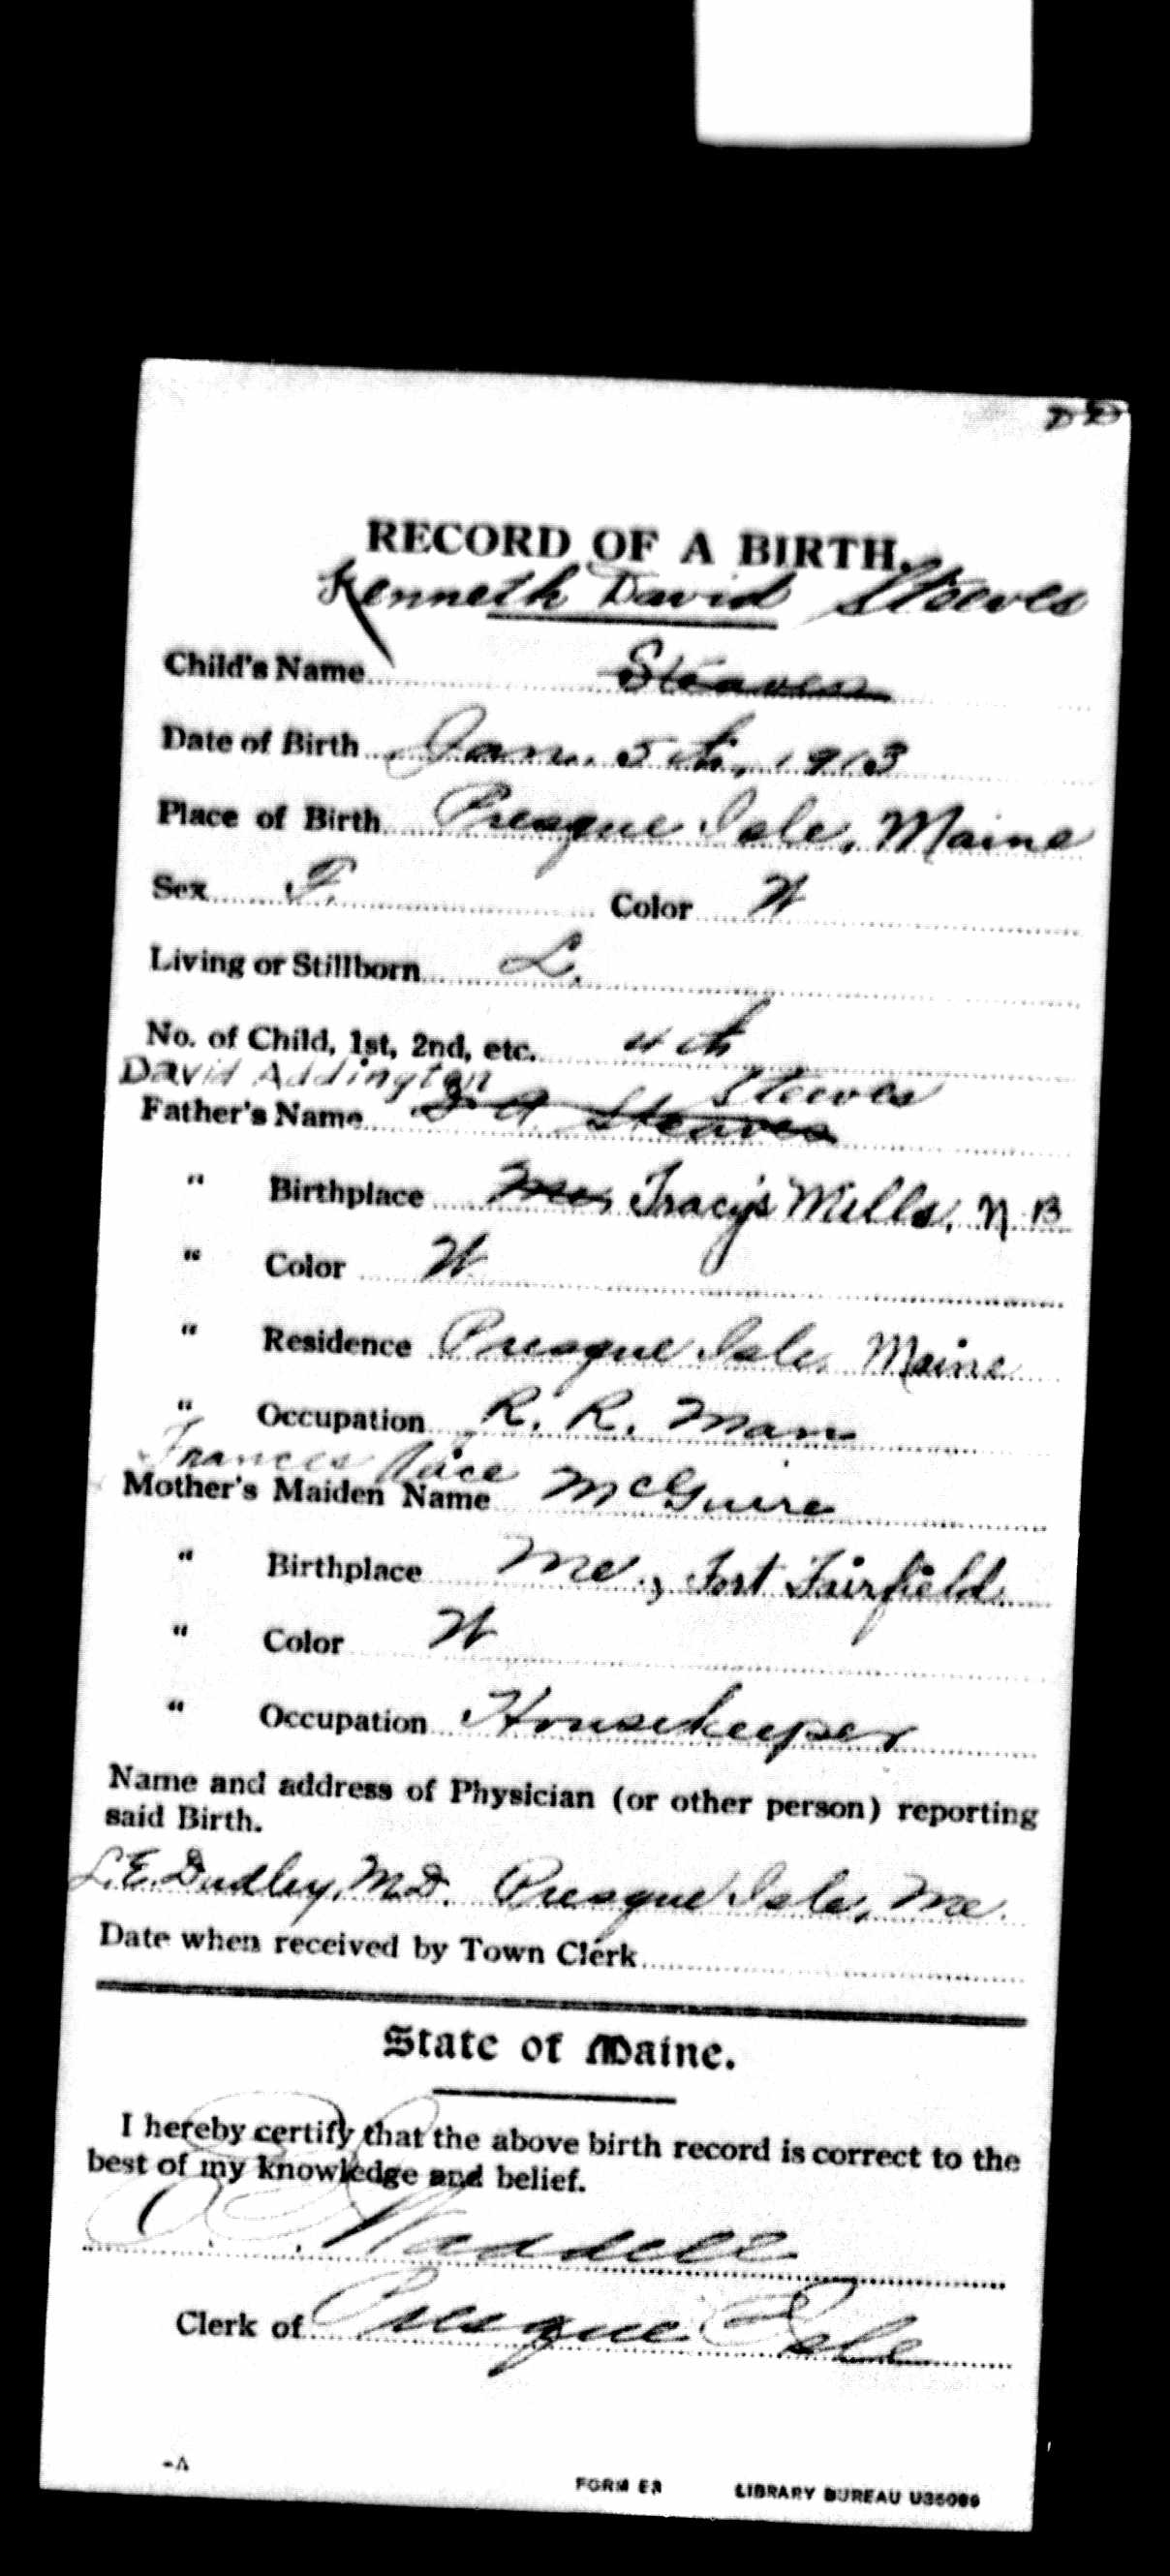 DD
RECORD OF A BIRTH.
Kenneth David Steeves
Child's Name Steaves
Date of Birth Jan. 5th, 1913
Place of Birth Presque Isle, Maine
Sex F. Color W
Living or Stillborn L.
No. of Child, 1st, 2nd, etc. 4th
David Addington Steeves
Father's Name D. A. Steaves
" Birthplace Me. Tracy's Mills, N.B
" Color W
" Residence Presque Isle, Maine
" Occupation R. R. Man
Frances
Mother's Maiden Name McGuire
" Birthplace Me., Fort Fairfield
" Color W
" Occupation Housekeeper
Name and address of Physician (or other person) reporting
said Birth.
L.E. Dudley, M.D. Presque Isle, Me.
Date when received by Town Clerk
State of Maine.
I hereby certify that the above birth record is correct to the
best of my knowledge and belief.
Waddell
Clerk of Presque Isle
-A
FORM E3 LIBRARY BUREAU